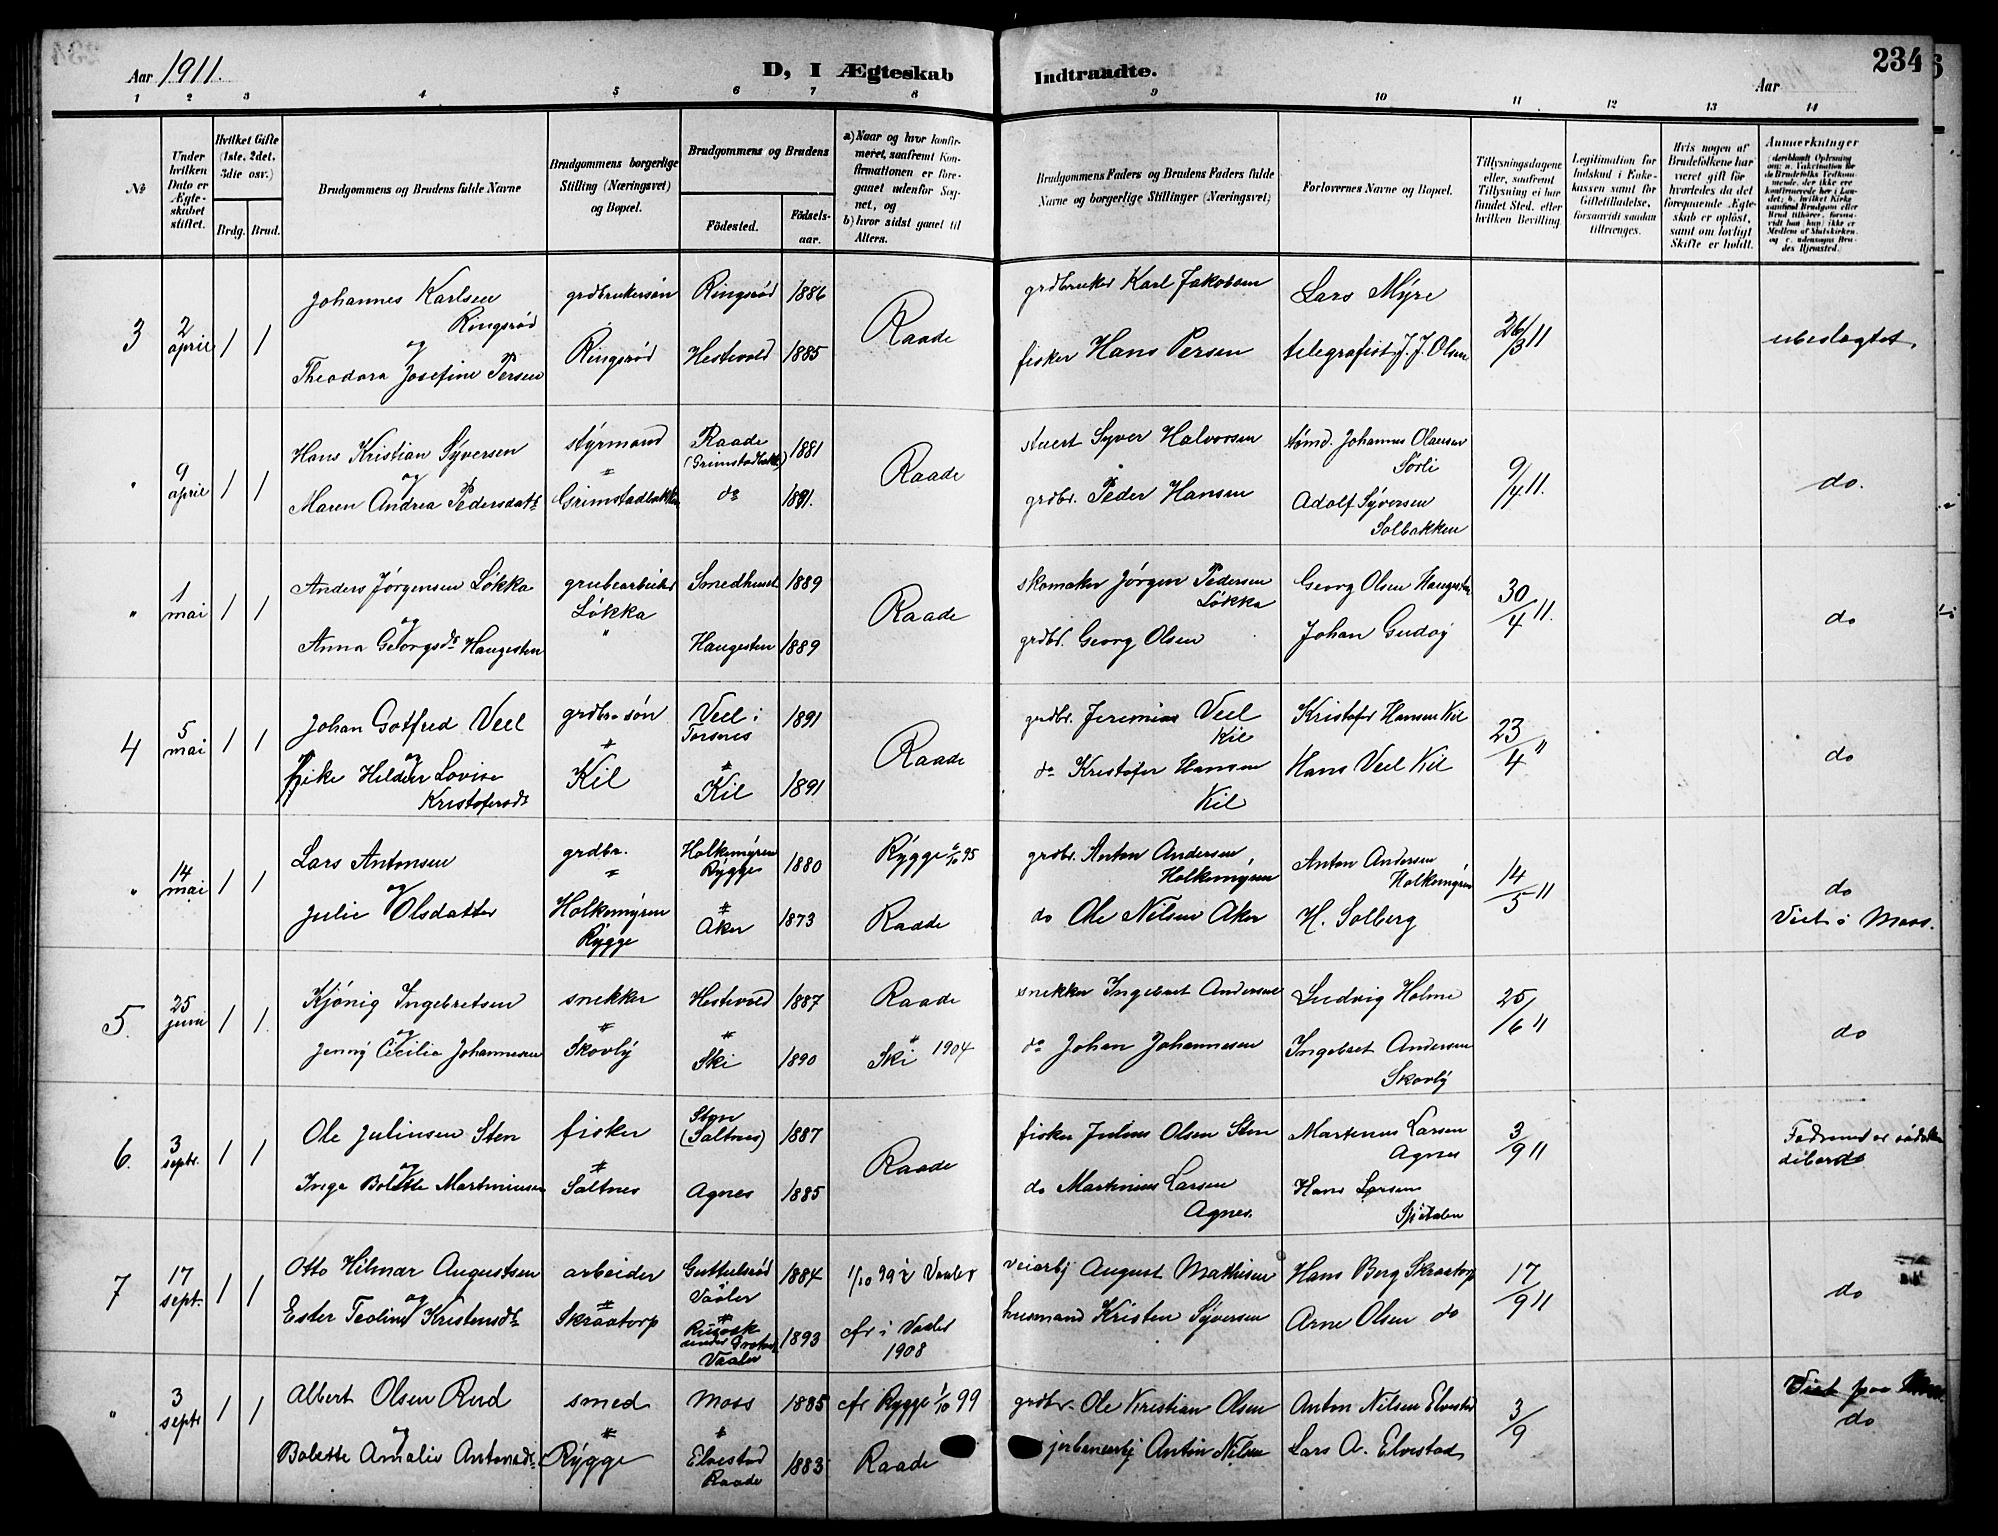 Aar 1911.
D, I Ægteskab Indtraadte.
Aar
234
1 2 3 4 5 6 7 8 9 10 11 12 13 14
No
Under hvilken Dato er Ægteskabet stiftet.
Hvilket Gifte (1ste, 2det, 3die osv.)
Brdg. Brud.
Brudgommens og Brudens fulde Navne
Brudgommens borgerlige Stilling (Næringsvei) og Bopæl.
Brudgommens og Brudens
Fødested.
Fødselsaar.
a) Naar og hvor konfirmeret, saafremt Konfirmationen er foregaaet udenfor Sognet, og
b) hvor sidst gaaet til Alters.
Brudgommens Faders og Brudens Faders fulde Navne og borgerlige Stillinger (Næringsvei)
Forlovernes Navne og Bopæl.
Tillysningsdagene eller, saafremt Tillysning ei har fundet Sted, efter hvilken Bevilling.
Legitimation for Indskud i Enkekassen samt for Giftetilladelse, forsaavidt saadan tiltrænges.
Hvis nogen af Brudefolkene har været gift før hvorledes da det foregaaende Ægteskab er opløst, samt om lovligt Skifte er holdt.
Anmerkninger
3 2 april 1 1 Johannes Karlsen Ringsrød grdbrukersøn Ringsrød 1886 Raade grdbruker Karl Jakobsen Lars Myre 26/3 11 ubeslægtet.
og
Theodora Josefine Persen Ringsrød Hestevold 1885 fisker Hans Persen telegrafist J. J. Olsen
" 9 april 1 1 Hans Kristian Syversen styrmand Raade (Grimstadbakk.) 1881 Raade stuert Syver Halvorsen tømd. Johannes Olausen Sørli 9/4 11. do.
og
Maren Andrea Pedersdatr Grimstadbakken do 1891. grdbr. Peder Hansen Adolf Syversen Solbakken
" 1 mai 1 1 Anders Jørgensen Løkka grubearbeider Løkka Smedhuset 1889 Raade skomaker Jørgen Pedersen Løkka Georg Olsen Haugesten 30/4 11. do
og
Anna Georgsdr Haugesten " Haugesten 1889 grdbr. Georg Olsen Johan Gudøy
4 5 mai 1 1 Johan Gotfred Veel grdbr. søn Veel i Torsnes 1891 Raade grdbr. Jeremias Veel Kil Kristofer Hansen Kil 23/4 " do
og
Hilda Lovise Kristofersdr Kil Kil 1891 do Kristofer Hansen Kil Hans Veel Kil
" 14 mai 1 1 Lars Antonsen grdbr. Holkemyren Rygge 1880 Rygge 6/10 95 grdbr. Anton Andersen Holkemyren Anton Andersen Holkemyren 14/5 11 do
og
Julie Olsdatter Holkemyren Rygge Aker 1873 Raade do Ole Nilsen Aker H. Solberg Viet i Moss.
5. 25 juni 1 1. Kjønig Ingebretsen snekker Hestevold 1887 Raade snekker Ingebret Andersen Ludvig Holme 25/6 11 do
og
Jenny Cecilia Johannesen Skovly Ski 1890 Ski 1904 do Johan Johannesen Ingebret Andersen Skovly
6. 3 septr. 1 1 Ole Juliusen Sten fisker Sten (Saltnes) 1887 Raade fisker Julius Olsen Sten Martinus Larsen Agnes 3/9 11 Fædrene er
og
Inga Bolette Martinusen Saltnes Agnes 1885 do Martinus Larsen Agnes. Hans Larsen Spitalen
7 17 sept. 1 1 Otto Hilmar Augustsen arbeider Guttulsrød Vaaler 1884 1/10 99 i Vaaler veiarbj August Mathisen Hans Berg Skraatorp 17/9 11 do
og
Ester Teoline Kristensdr Skraatorp Vaaler 1893 cfr i Vaaler 1908 husmand Kristen Syversen Arne Olsen do
" 3 septr 1 1 Albert Olsen Rud smed Moss 1885 cfr Rygge 1/10 99 grdbr. Ole Kristian Olsen Anton Nilsen Elvestad 3/9 Viet paa
do
og
Bolette Amalie Antonsdr. Rygge Elvestad Raade 1883 Raade jerbanearbj Anton Nilsen Lars A. Elvestad